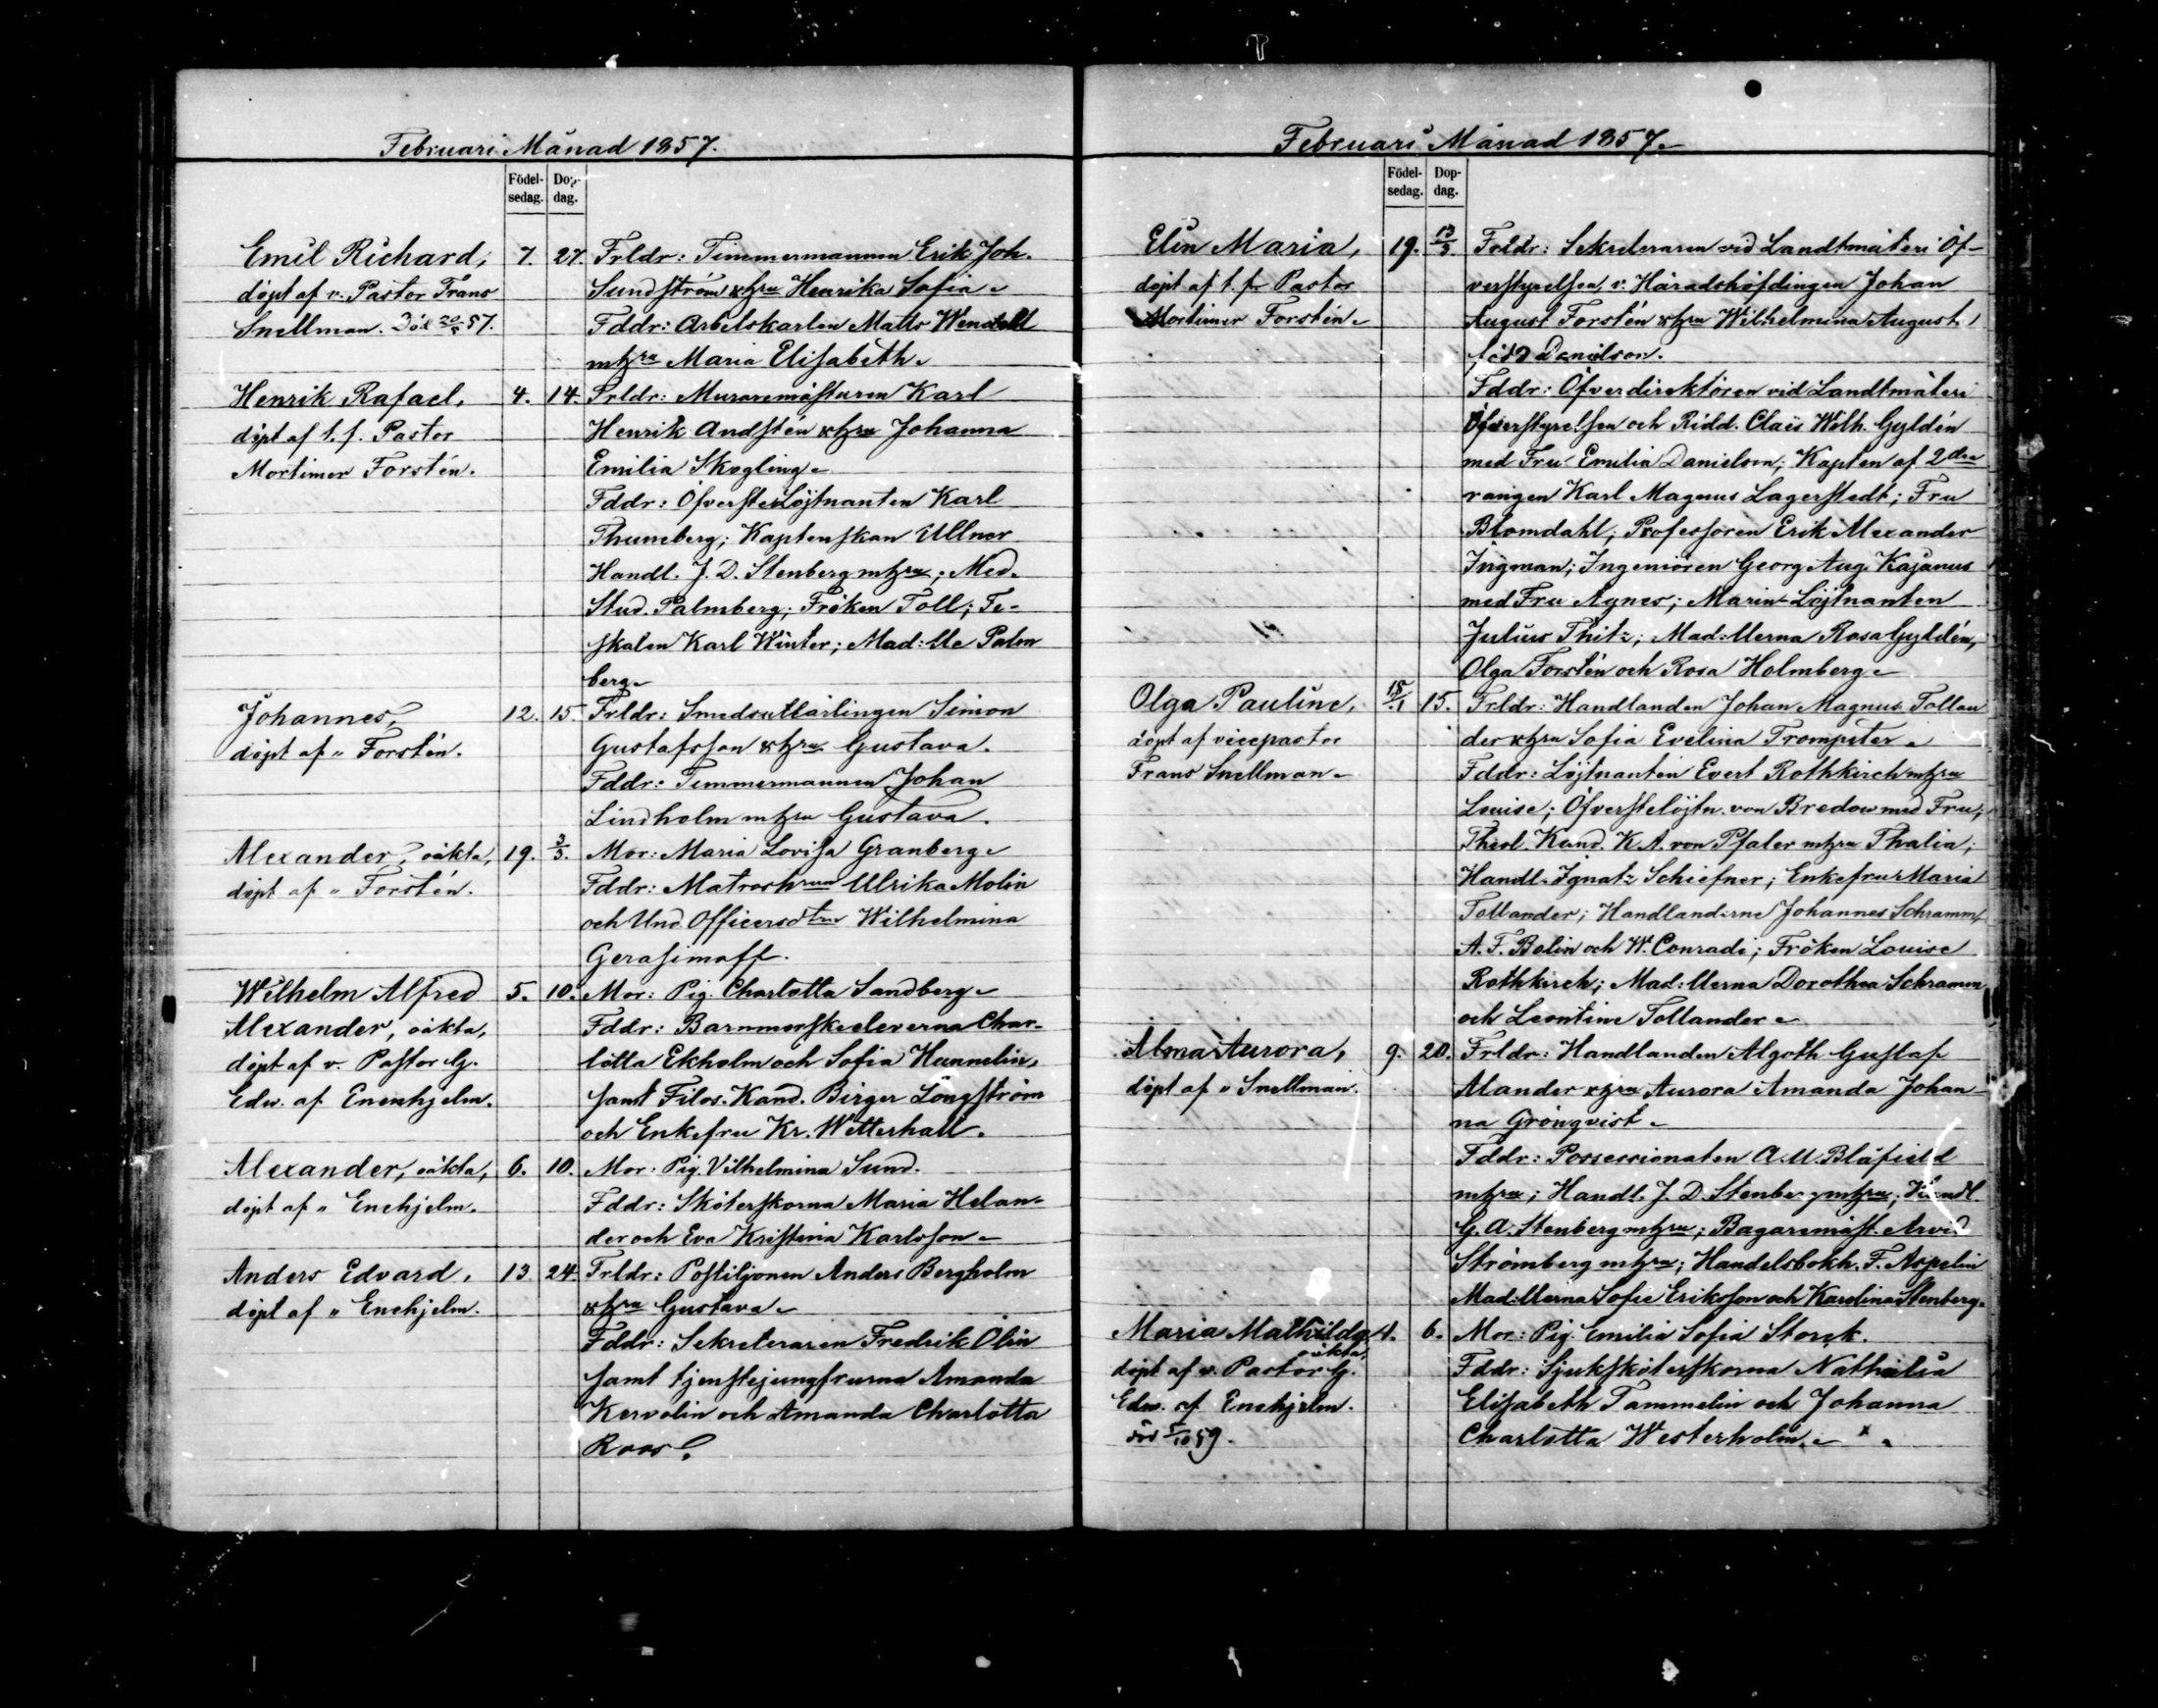 Februari Månad 1857.
Födel-
sedag.
Dop-
dag.
Emil Richard, 7. 27. Frldr: Timmermannen Erik Joh.
döpt af v. Pastor Frans Sundström o hru Henrika Sofia.
Snellman. Död 20/5 57. Fddr: Arbetskarlen Matts Wendell
m hru Maria Elisabeth.
Henrik Rafael, 4. 14. Frldr: Muraremästaren Karl
döpt af t. f. Pastor Henrik Andstén o hru Johanna
Mortimer Forstén. Emilia Skogling.
Fddr: Öfverstelöjtnanten Karl
Thuneberg; Kaptenskan Ullner
Handl. J. D. Stenberg m hru; Med.
Stud. Palmberg; Fröken Toll; Fi-
skalen Karl Winter; Mad:lle Palm
berg.
Johannes, 12. 15. Frldr: Smedsutlärlingen Simon
döpt af " Forstén. Gustafsson o hru Gustava.
Fddr: Timmermannen Johan
Lindholm m hru Gustava.
Alexander, oäkta, 19. 3/3. Mor: Maria Lovisa Granberg.
döpt af " Forstén. Fddr: Matroshrun Ulrika Molin
och Und. Officersdtrn Wilhelmina
Gerasimoff.
Wilhelm Alfred 5. 10. Mor: Pig. Charlotta Sandberg.
Alexander, oäkta, Fddr: Barnmorskeeleverna Char-
döpt af v. Pastor G. lotta Ekholm och Sofia Hunnelin,
Edw. af Enehjelm. samt Filos. Kand. Birger Långström
och Enkefru Kr. Wetterhall.
Alexander, oäkta, 6. 10. Mor: Pig. Vilhelmina Sund.
döpt af " Enehjelm. Fddr: Sköterskorna Maria Helan-
der och Eva Kristina Karlsson.
Anders Edvard, 13. 24. Frldr: Postiljonen Anders Bergholm
döpt af " Enehjelm. o hru Gustava.
Fddr: Sekreteraren Fredrik Olin
samt tjenstejungfrurna Amanda
Kervolin och Amanda Charlotta
Roos.
Februari Månad 1857.
Födel-
sedag.
Dop-
dag.
Elin Maria, 19. 13/3. Frldr: Sekreteraren vid Landtmäteri Öf-
döpt af t. f. Pastor verstyrelsen, v. Häradshöfdingen Johan
Mortimer Forstén. August Forstén o hru Wilhelmina August.
född Danielson.
Fddr: Öfverdirektören vid Landtmäteri
Öfverstyrelsen och Ridd. Claës Wilh. Gyldén
med Fru Emilia Danielson; Kapten af 2dra
rangen Karl Magnus Lagerstedt; Fru
Blomdahl; Professoren Erik Alexander
Ingman; Ingeniören Georg Aug. Kajanus
med Fru Agnes; Marin-Löjtnanten
Julius Thitz; Mad:llerna Rosa Gyldén,
Olga Forstén och Rosa Holmberg.
Olga Pauline, 18/1 15. Frldr: Handlanden Johan Magnus Tollan
döpt af vicepastor der o hru Sofia Evelina Trompeter.
Frans Snellman. Fddr: Löjtnanten Evert Rothkirch m hru
Louise; Öfverstelöjtn. von Bredow med Fru;
Theol. Kand. K. A. von Pfaler m hru Thalia;
Handl. Ignatz Schiefner; Enkefru Maria
Tollander; Handlanderne Johannes Schramm,
A. F. Bolin och W. Conradi; Fröken Louise
Rothkirch; Mad:llerna Dorothea Schramm
och Leontine Tollander.
Alma Aurora, 9. 20. Frldr: Handlanden Algoth Gustaf
döpt af " Snellman. Alander o hru Aurora Amanda Johan-
na Grönqvist.
Fddr: Possessionaten A. U. Blåfield
m hru; Handl. J. D. Stenberg m hru; Handl.
G. A. Stenberg m hru; Bagaremäst. Arvid
Strömberg m hru; Handelsbokh. F. Aspelin
Mad:llerna Sofie Eriksson och Karolina Stenberg.
Maria Mathilda, 4. 6. Mor: Pig. Emilia Sofia Storck.
oäkta,
döpt af v. Pastor G. Fddr: Sjuksköterskorna Nathalia
Edw. af Enehjelm. Elisabeth Tammelin och Johanna
död 5/10 59. Charlotta Westerholm.